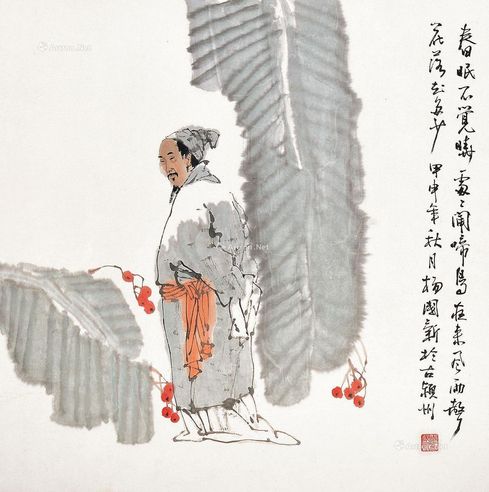 春眠不覺曉處〻聞啼鳥夜来风雨聲
花落知多少 甲申年秋月楊國新於古穎州
Artron.Net
Artron.Net
Artron.Net